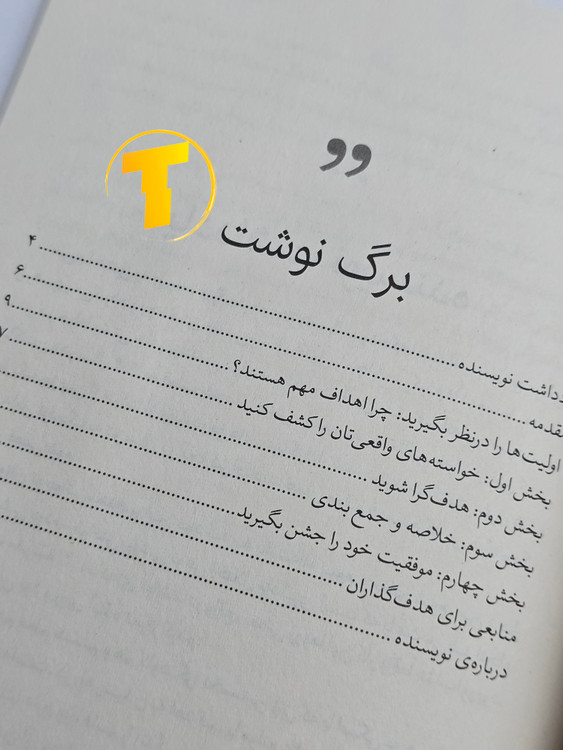 ”
T
برگ نوشت
دداشت نویسنده ........................ ۴
قدمه ........................ ۶
اولیت‌ها را درنظر بگیرید: چرا اهداف مهم هستند؟ ........................ ۹
بخش اول: خواسته‌های واقعی‌تان را کشف کنید ........................ ۷
بخش دوم: هدف‌گرا شوید ........................
بخش سوم: خلاصه و جمع بندی ........................
بخش چهارم: موفقیت خود را جشن بگیرید ........................
منابعی برای هدف‌گذاران ........................
درباره‌ی نویسنده ........................